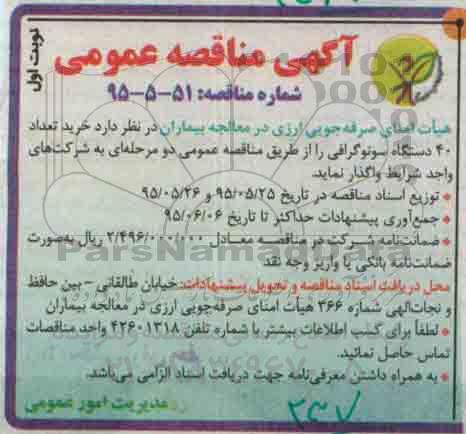 نوبت اول
آگهی مناقصه عمومی
شماره مناقصه: ۵۱-۵-۹۵
هیأت امنای صرفه‌جویی ارزی در معالجه بیماران در نظر دارد خرید تعداد
۴۰ دستگاه سونوگرافی را از طریق مناقصه عمومی دو مرحله‌ای به شرکت‌های
واجد شرایط واگذار نماید.
* توزیع اسناد مناقصه در تاریخ ۹۵/۰۵/۲۵ و ۹۵/۰۵/۲۶
* جمع‌آوری پیشنهادات حداکثر تا تاریخ ۹۵/۰۶/۰۶
* ضمانت‌نامه شرکت در مناقصه معادل ۲/۴۹۶/۰۰۰/۰۰۰ ریال به‌صورت
ضمانت‌نامه بانکی یا واریز وجه نقد
محل دریافت اسناد مناقصه و تحویل پیشنهادات: خیابان طالقانی - بین حافظ
و نجات‌الهی شماره ۳۶۶ هیأت امنای صرفه‌جویی ارزی در معالجه بیماران
* لطفاً برای کسب اطلاعات بیشتر با شماره تلفن ۴۲۶۰۱۳۱۸ واحد مناقصات
تماس حاصل نمائید.
* به همراه داشتن معرفی‌نامه جهت دریافت اسناد الزامی می‌باشد.
مدیریت امور عمومی
۲۳۷